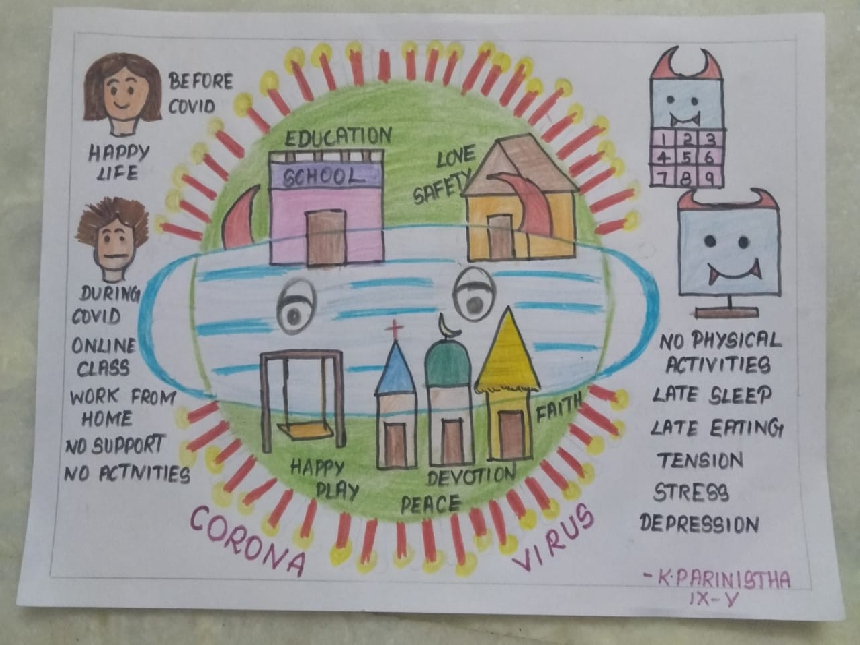 BEFORE
COVID
HAPPY
LIFE
DURING
COVID
ONLINE
CLASS
WORK FROM
HOME
NO SUPPORT
NO ACTIVITIES
EDUCATION
SCHOOL
LOVE
SAFETY
HAPPY
PLAY
DEVOTION
PEACE
FAITH
CORONA
VIRUS
1 2 3
4 5 6
7 8 9
NO PHYSICAL
ACTIVITIES
LATE SLEEP
LATE EATING
TENSION
STRESS
DEPRESSION
- K.PARINISTHA
IX-Y